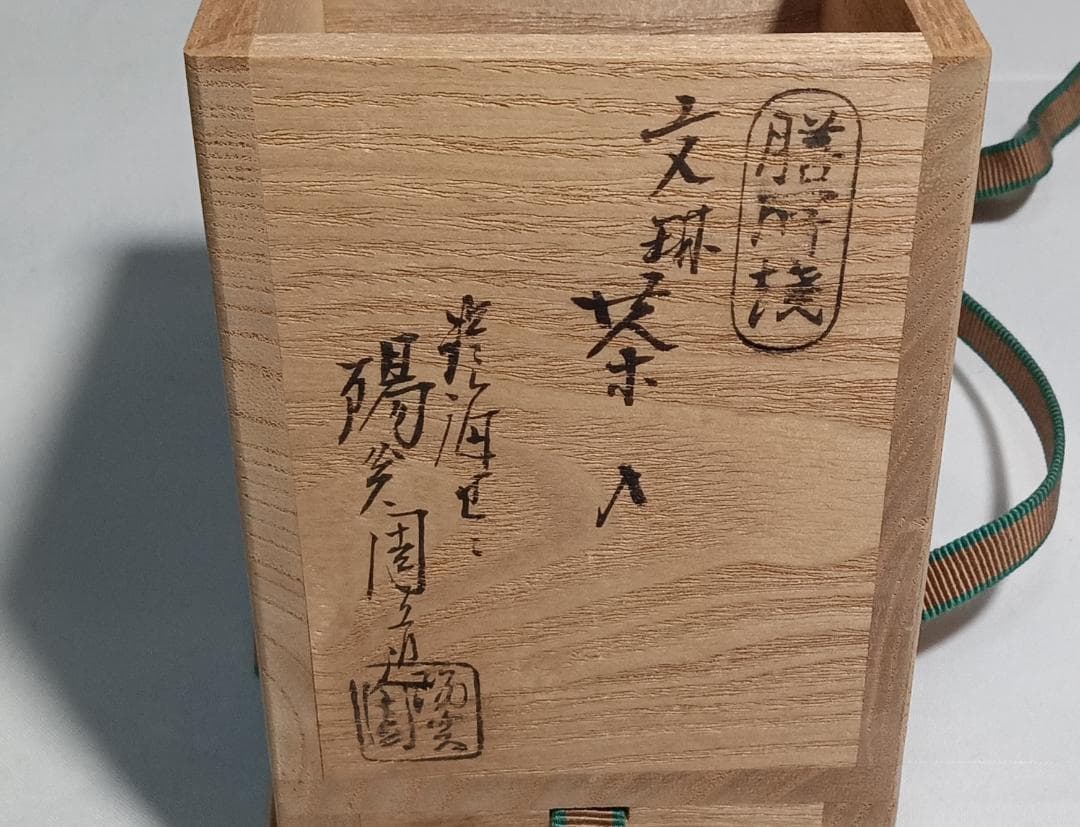 膳所焼
文琳
茶入
陽炎園造
陽炎園